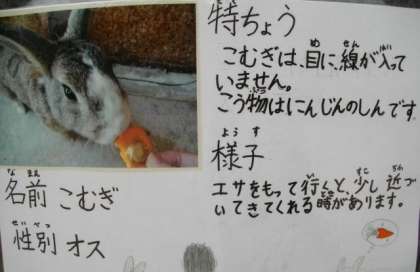 特ちょう
こむぎは、目に、線が入って
いません。
こう物はにんじんのしんです。
様子
エサをもって行くと、少し近づ
いてきてくれる時があります。
名前 こむぎ
性別 オス